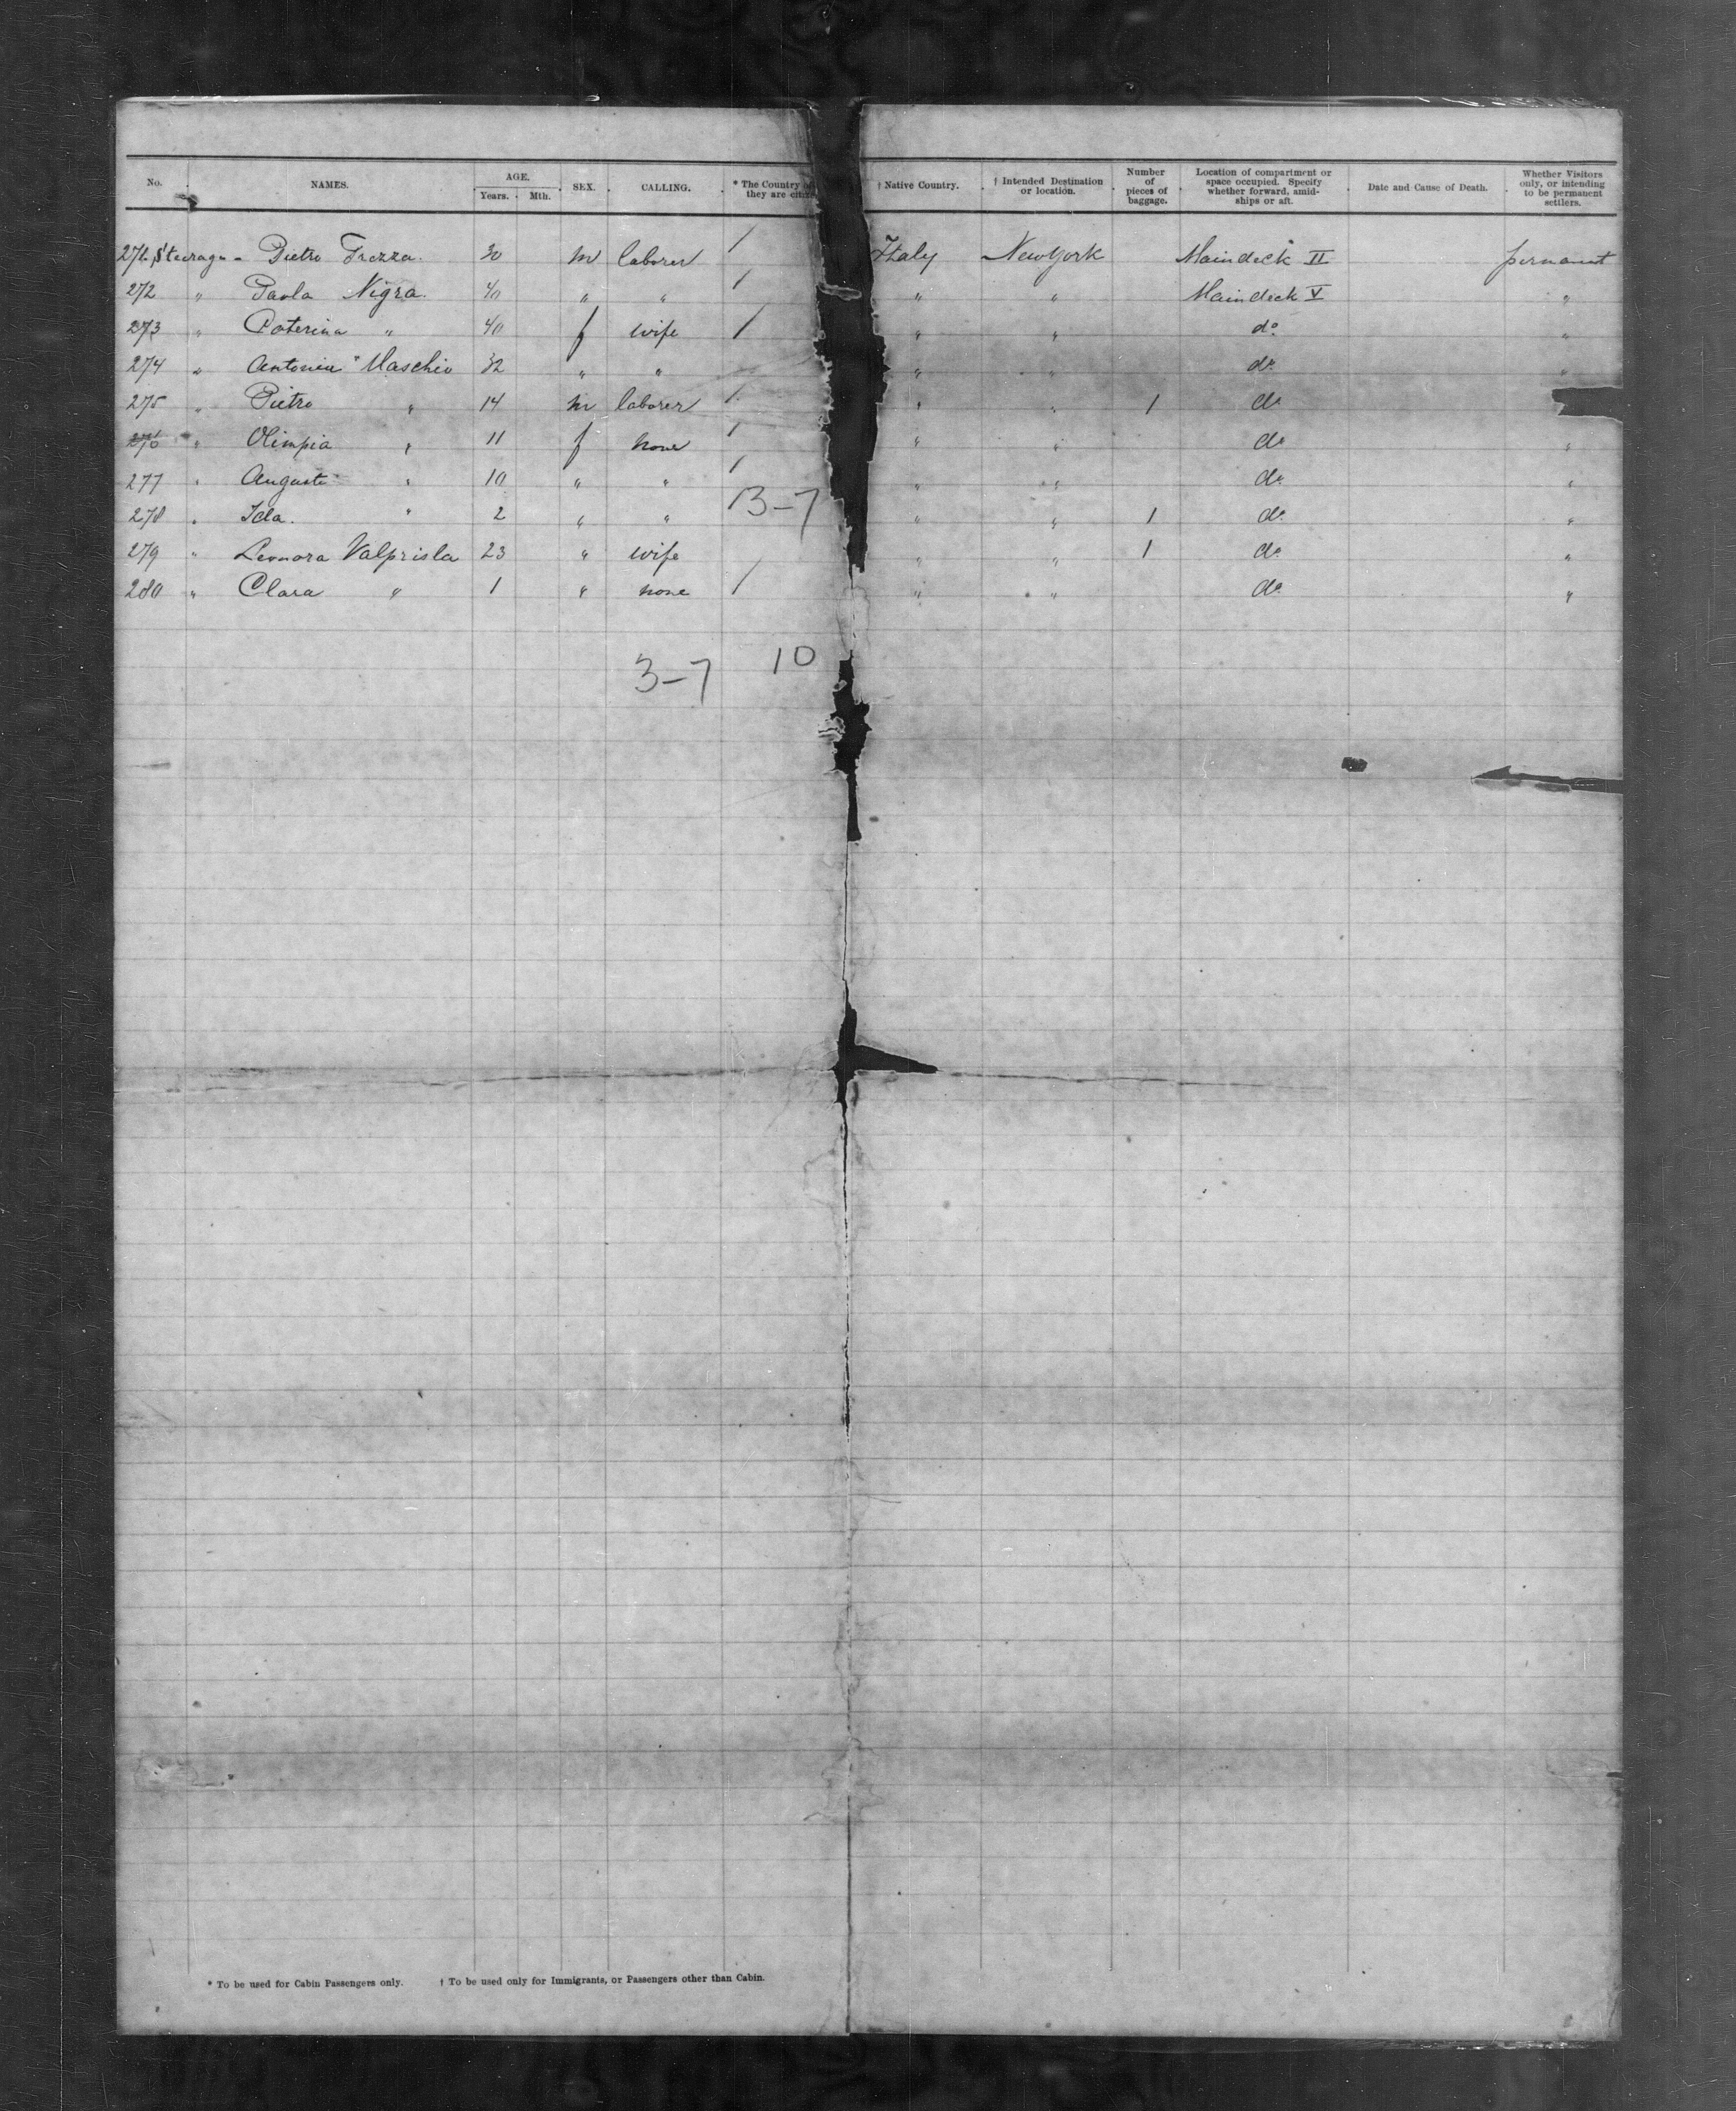 No. NAMES. AGE. Years. Mth. SEX. CALLING. * The Country of they are citiz † Native Country. † Intended Destination or location. Number of pieces of baggage. Location of compartment or space occupied. Specify whether forward, amidships or aft. Date and Cause of Death. Whether Visitors only, or intending to be permanent settlers.
271 Steerage - Pietro Frezza. 30 m laborer / Italy New York Maindeck II permanent
272 " Paola Nigra. 40 " " / " " Maindeck V "
273 " Caterina " 40 f wife / " " do "
274 " Antonia Maschio 32 " " " " do "
275 " Pietro " 14 m laborer / " " 1 do
276 " Olimpia " 11 f none / " " do "
277 " Auguste " 10 " " / " " do "
278 " Ida. " 2 " " 3-7 " " 1 do "
279 " Leonora Valprisla 23 " wife " " 1 do "
280 " Clara " 1 " none / " " do "
3-7 10
* To be used for Cabin Passengers only. † To be used only for Immigrants, or Passengers other than Cabin.